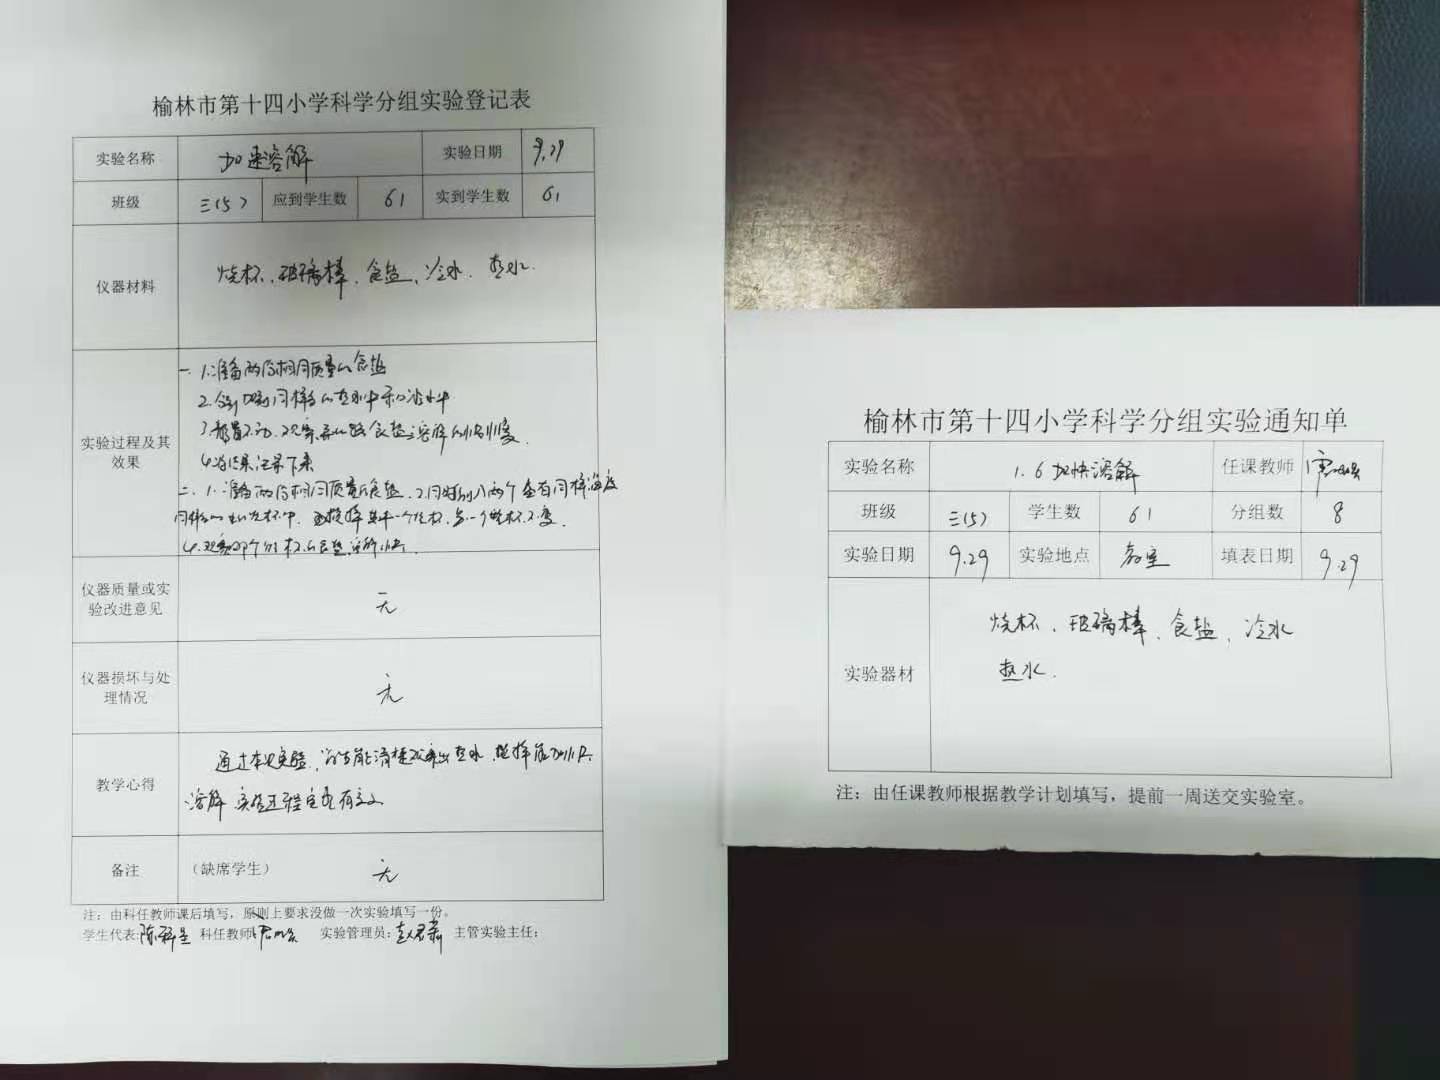 榆林市第十四小学科学分组实验登记表
实验名称 加速溶解 实验日期 9.29
班级 三(5) 应到学生数 61 实到学生数 61
仪器材料 烧杯、玻璃棒、食盐、冷水、热水.
实验过程及其效果
一、1.准备两份相同质量的食盐
2.分别加到同样多的热水中和冷水中
3.静置不动,观察食盐溶解的快慢变
4.将结果记录下来
二、1.准备两份相同质量食盐、2.同时倒入两个盛有同样温度
同样的水烧杯中,搅拌其中一个烧杯,另一个烧杯不变.
4.观察两个烧杯的食盐溶解快慢.
仪器质量或实验改进意见 无
仪器损坏与处理情况 无
教学心得 通过本次实验,学生能清楚观察出热水、搅拌能加快
溶解 实验过程完整有意义
备注 (缺席学生) 无
注:由科任教师课后填写,原则上要求没做一次实验填写一份。
学生代表: 科任教师 实验管理员: 主管实验主任:
榆林市第十四小学科学分组实验通知单
实验名称 1.6加快溶解 任课教师
班级 三(5) 学生数 61 分组数 8
实验日期 9.29 实验地点 教室 填表日期 9.29
实验器材 烧杯、玻璃棒、食盐、冷水
热水.
注:由任课教师根据教学计划填写,提前一周送交实验室。